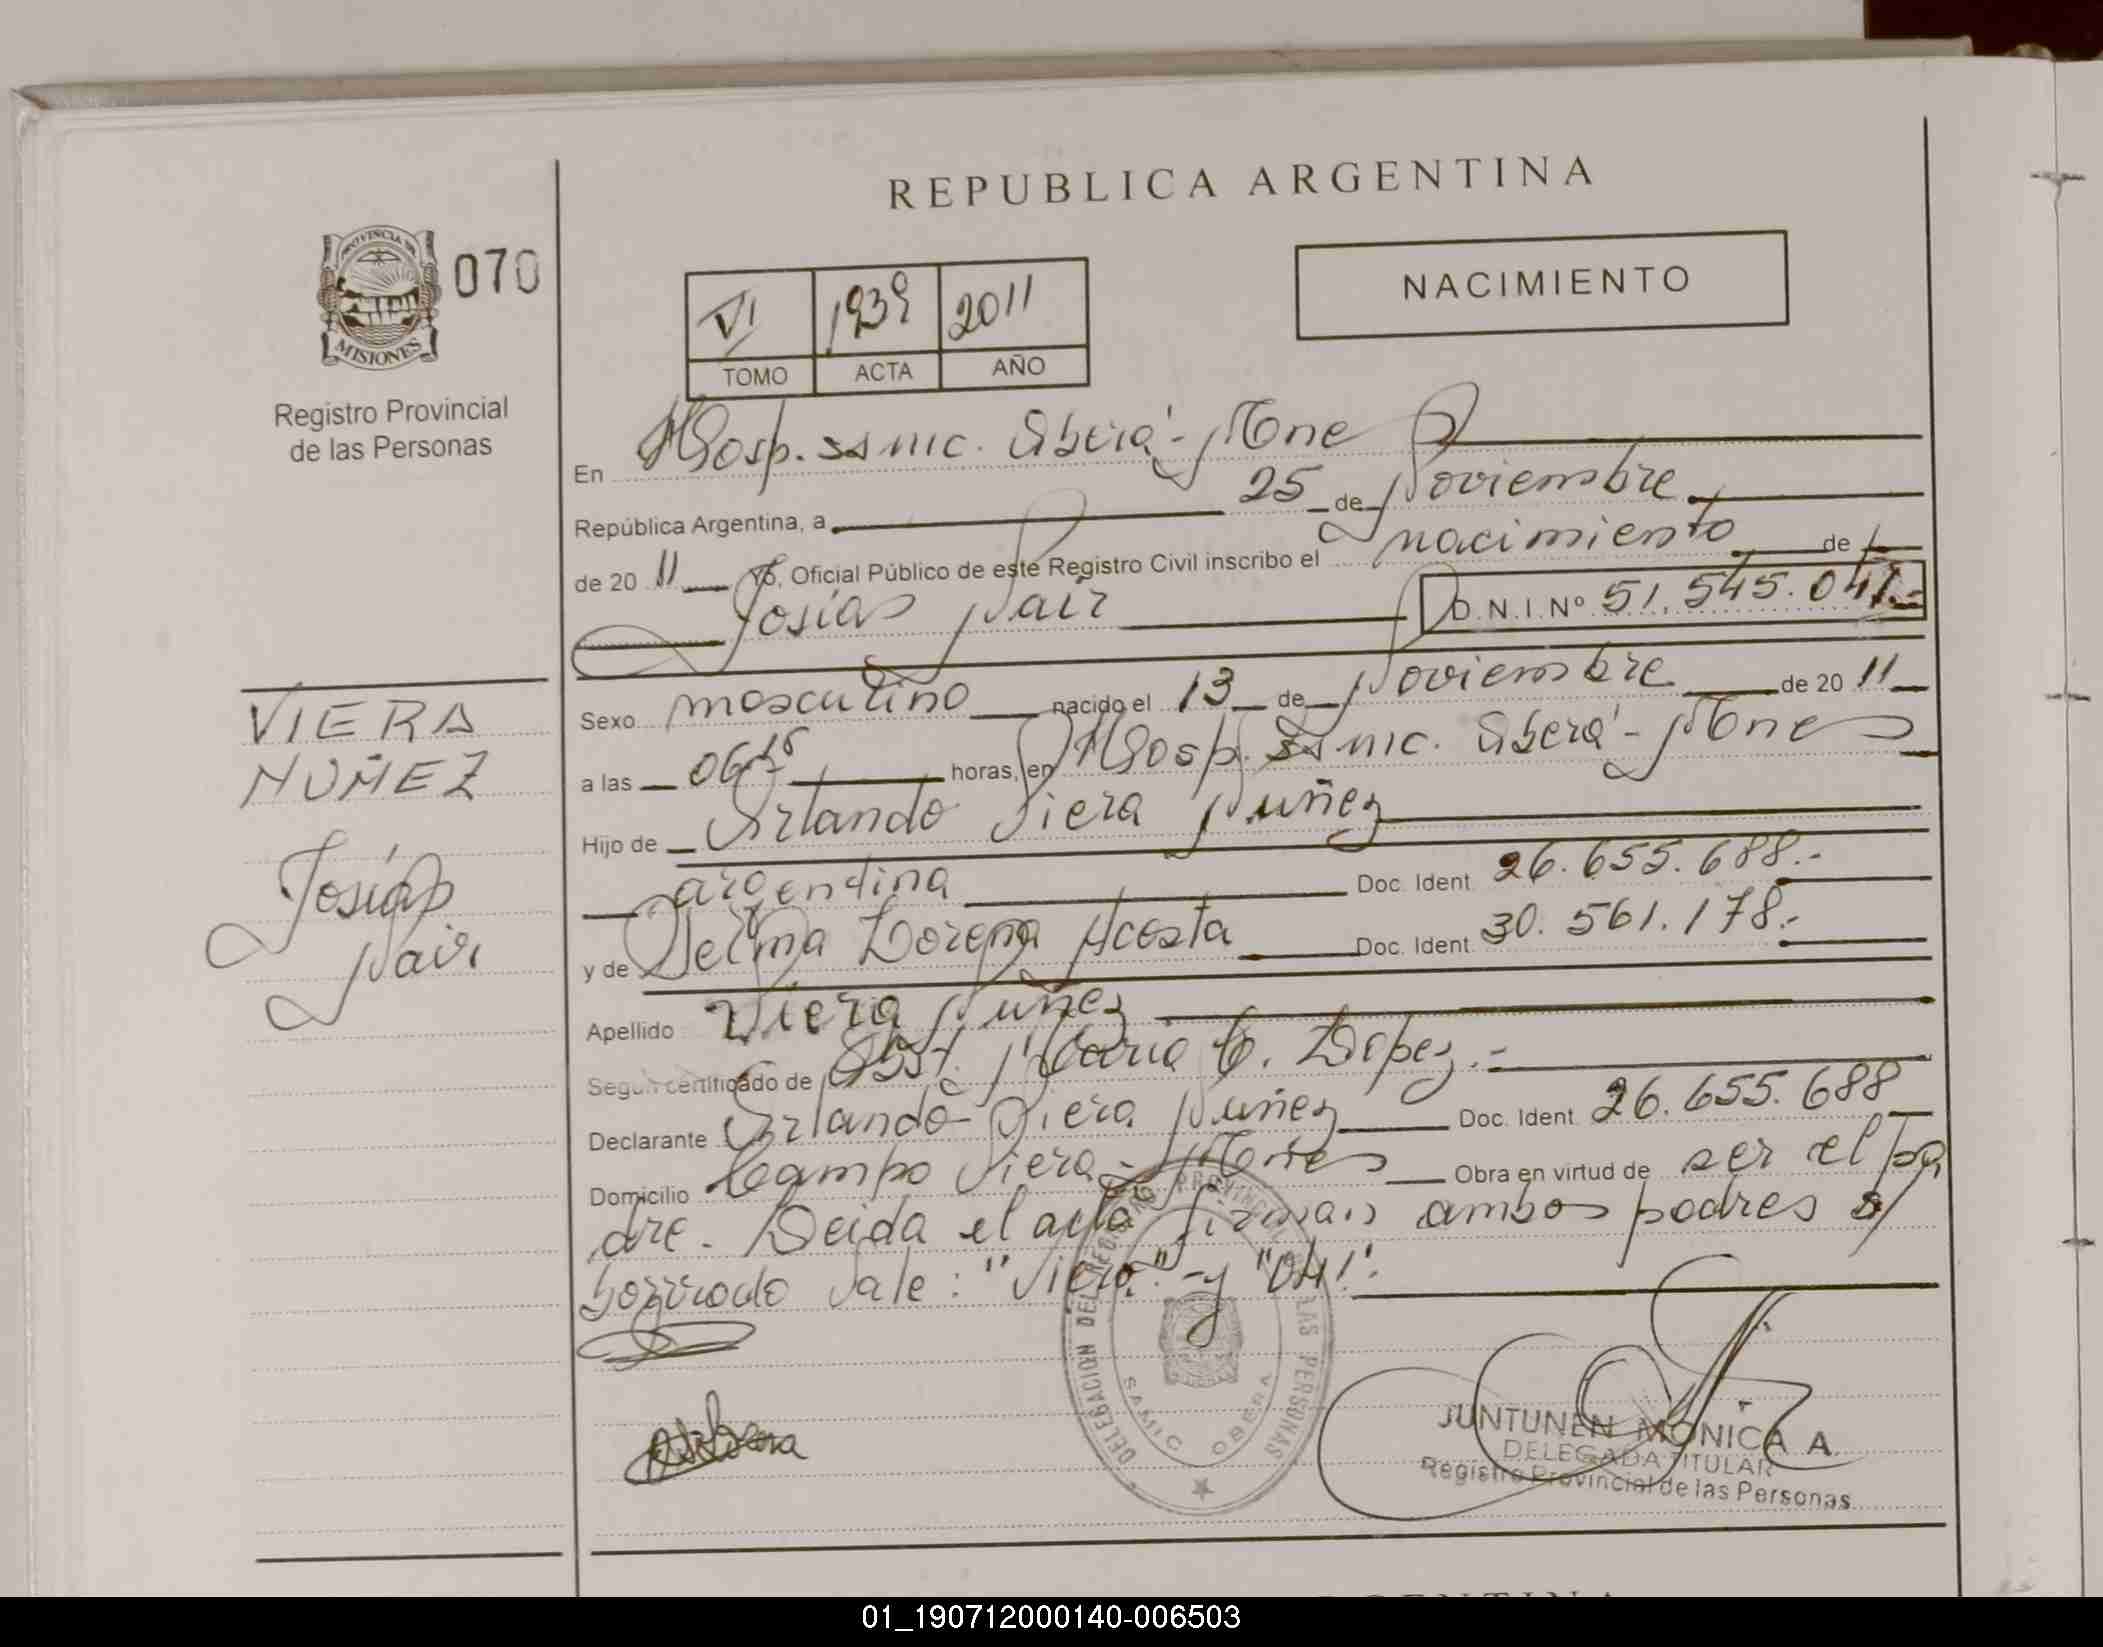 REPUBLICA ARGENTINA
PROVINCIA DE
MISIONES
070
Registro Provincial
de las Personas
VI 1939 2011
TOMO ACTA AÑO
NACIMIENTO
En Hosp. SAMIC. Oberá - Mnes
República Argentina, a 25 de Noviembre
de 20 11 Yo, Oficial Público de este Registro Civil inscribo el nacimiento de
Josías Nair D.N.I. Nº 51.545.041.-
VIERA
NUÑEZ
Josías
Nair
Sexo masculino nacido el 13 de Noviembre de 20 11
a las 06:15 horas, en Hosp. SAMIC. Oberá - Mnes
Hijo de Orlando Viera Nuñez
argentina Doc. Ident. 26.655.688.-
y de Telma Lorena Acosta Doc. Ident. 30.561.178.-
Apellido Viera Nuñez
Según certificado de Obst. Maria C. Lopez.-
Declarante Orlando Viera Nuñez Doc. Ident. 26.655.688
Domicilio Campo Viera - Mnes Obra en virtud de ser el pa
dre. Leida el acta firman ambos padres s/
borrado Vale: "Viera" - y "041".
DELEGACION DEL REGISTRO PROVINCIAL DE LAS PERSONAS
SAMIC OBERA
JUNTUNEN MONICA A.
DELEGADA TITULAR
Registro Provincial de las Personas
01_190712000140-006503